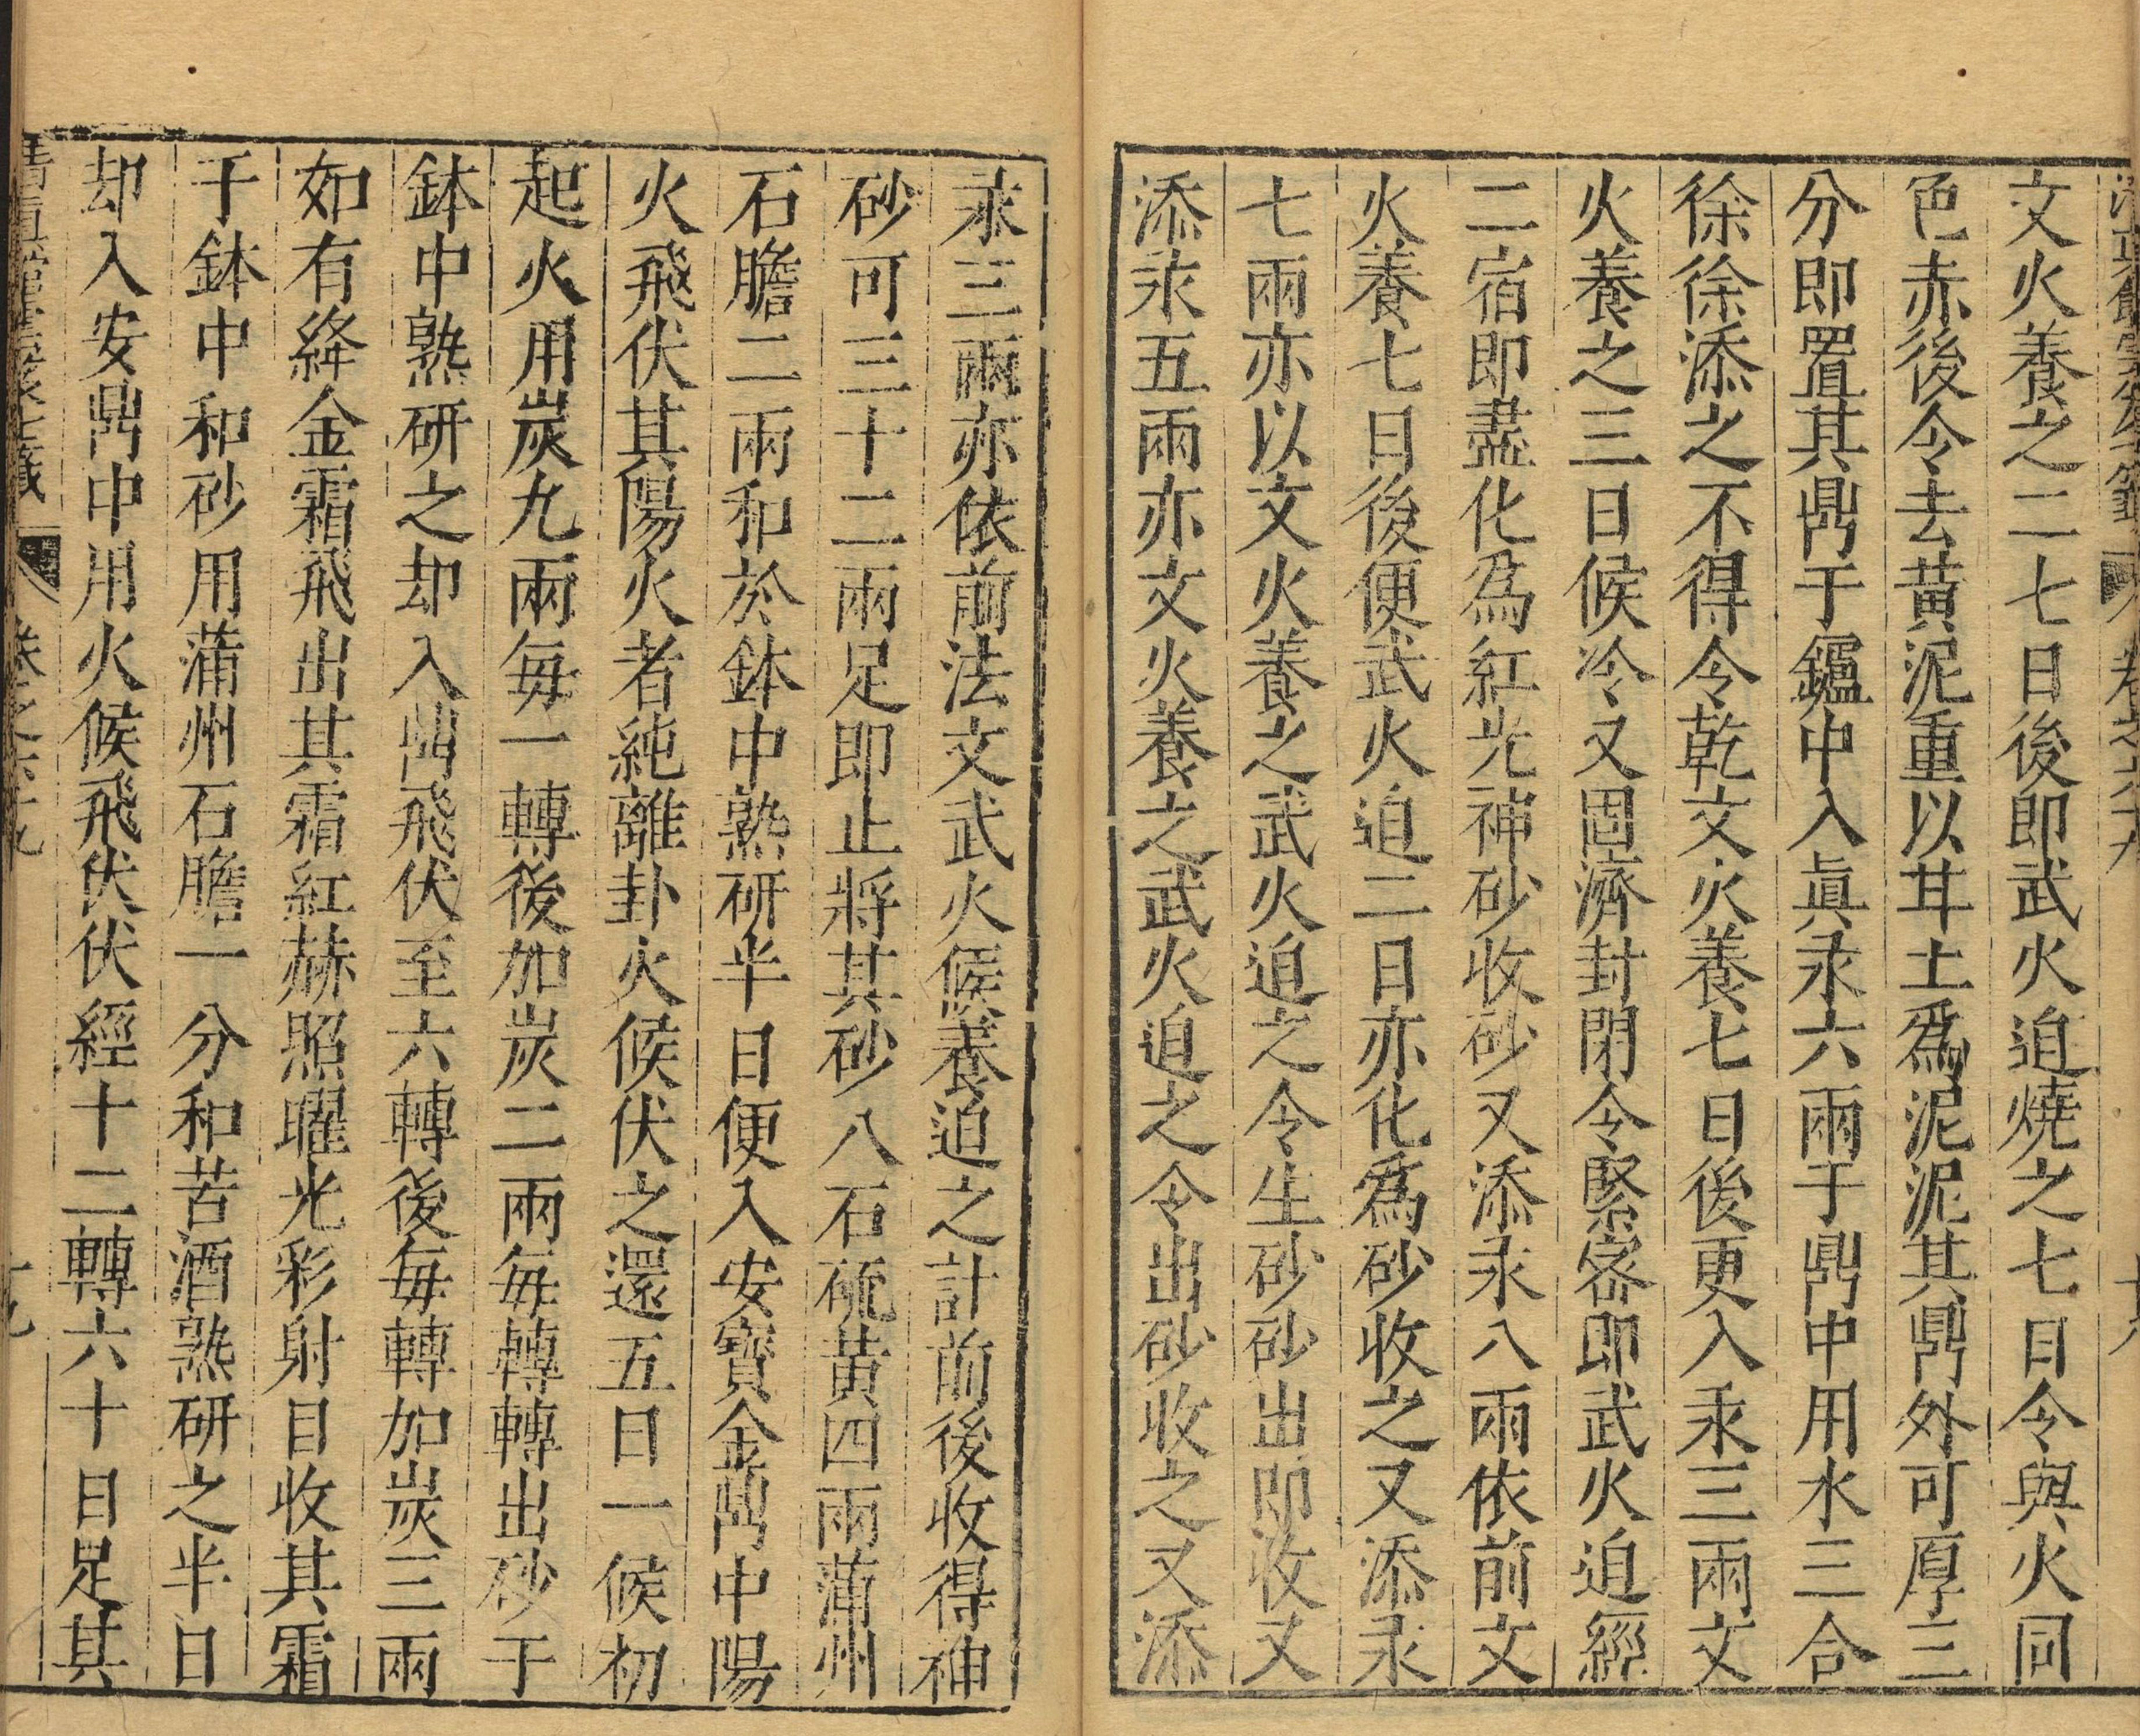 文火養之二七日後即武火迫燒之七日令與火同
色赤後令去黃泥重以甘土爲泥泥其鼎外可厚三
分即置其鼎于鑪中入眞汞六兩于鼎中用水三合
徐徐添之不得令乾文火養七日後更入汞三兩文
火養之三日候冷又固濟封閉令緊密即武火迫經
二宿即盡化爲紅光神砂收砂又添汞八兩依前文
火養七日後便武火迫二日亦化爲砂收之又添汞
七兩亦以文火養之武火迫之令生砂砂出即收又
添汞五兩亦文火養之武火迫之令出砂收之又添
汞三兩亦依前法文武火候養迫之計前後收得神
砂可三十二兩足即止將其砂八石硫黃四兩蒲州
石膽二兩和於鉢中熟研半日便入安寶金鼎中陽
火飛伏其陽火者純離卦火候伏之還五日一候初
起火用炭九兩每一轉後加炭二兩每轉轉出砂于
鉢中熟研之却入鼎飛伏至六轉後每轉加炭三兩
如有絳金霜飛出其霜紅赫照曜光彩射目收其霜
于鉢中和砂用蒲州石膽一分和苦酒熟研之半日
却入安鼎中用火候飛伏伏經十二轉六十日足其